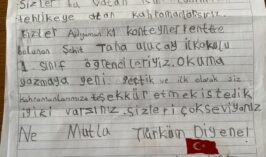 Sizler bu vatan için
tehlikeye atan kahramanlarsınız.
Bizler Adıyaman K1 konteynerkentte
bulunan Şehit Taha uluçay ilkokulu
1. sınıf öğrencileriyiz. Okuma
yazmaya yeni geçtik ve ilk olarak siz
kahramanlarımıza teşekkür etmek istedik
iyiki varsınız. sizleri çokseviyoruz
Ne Mutlu Türküm Diyene!